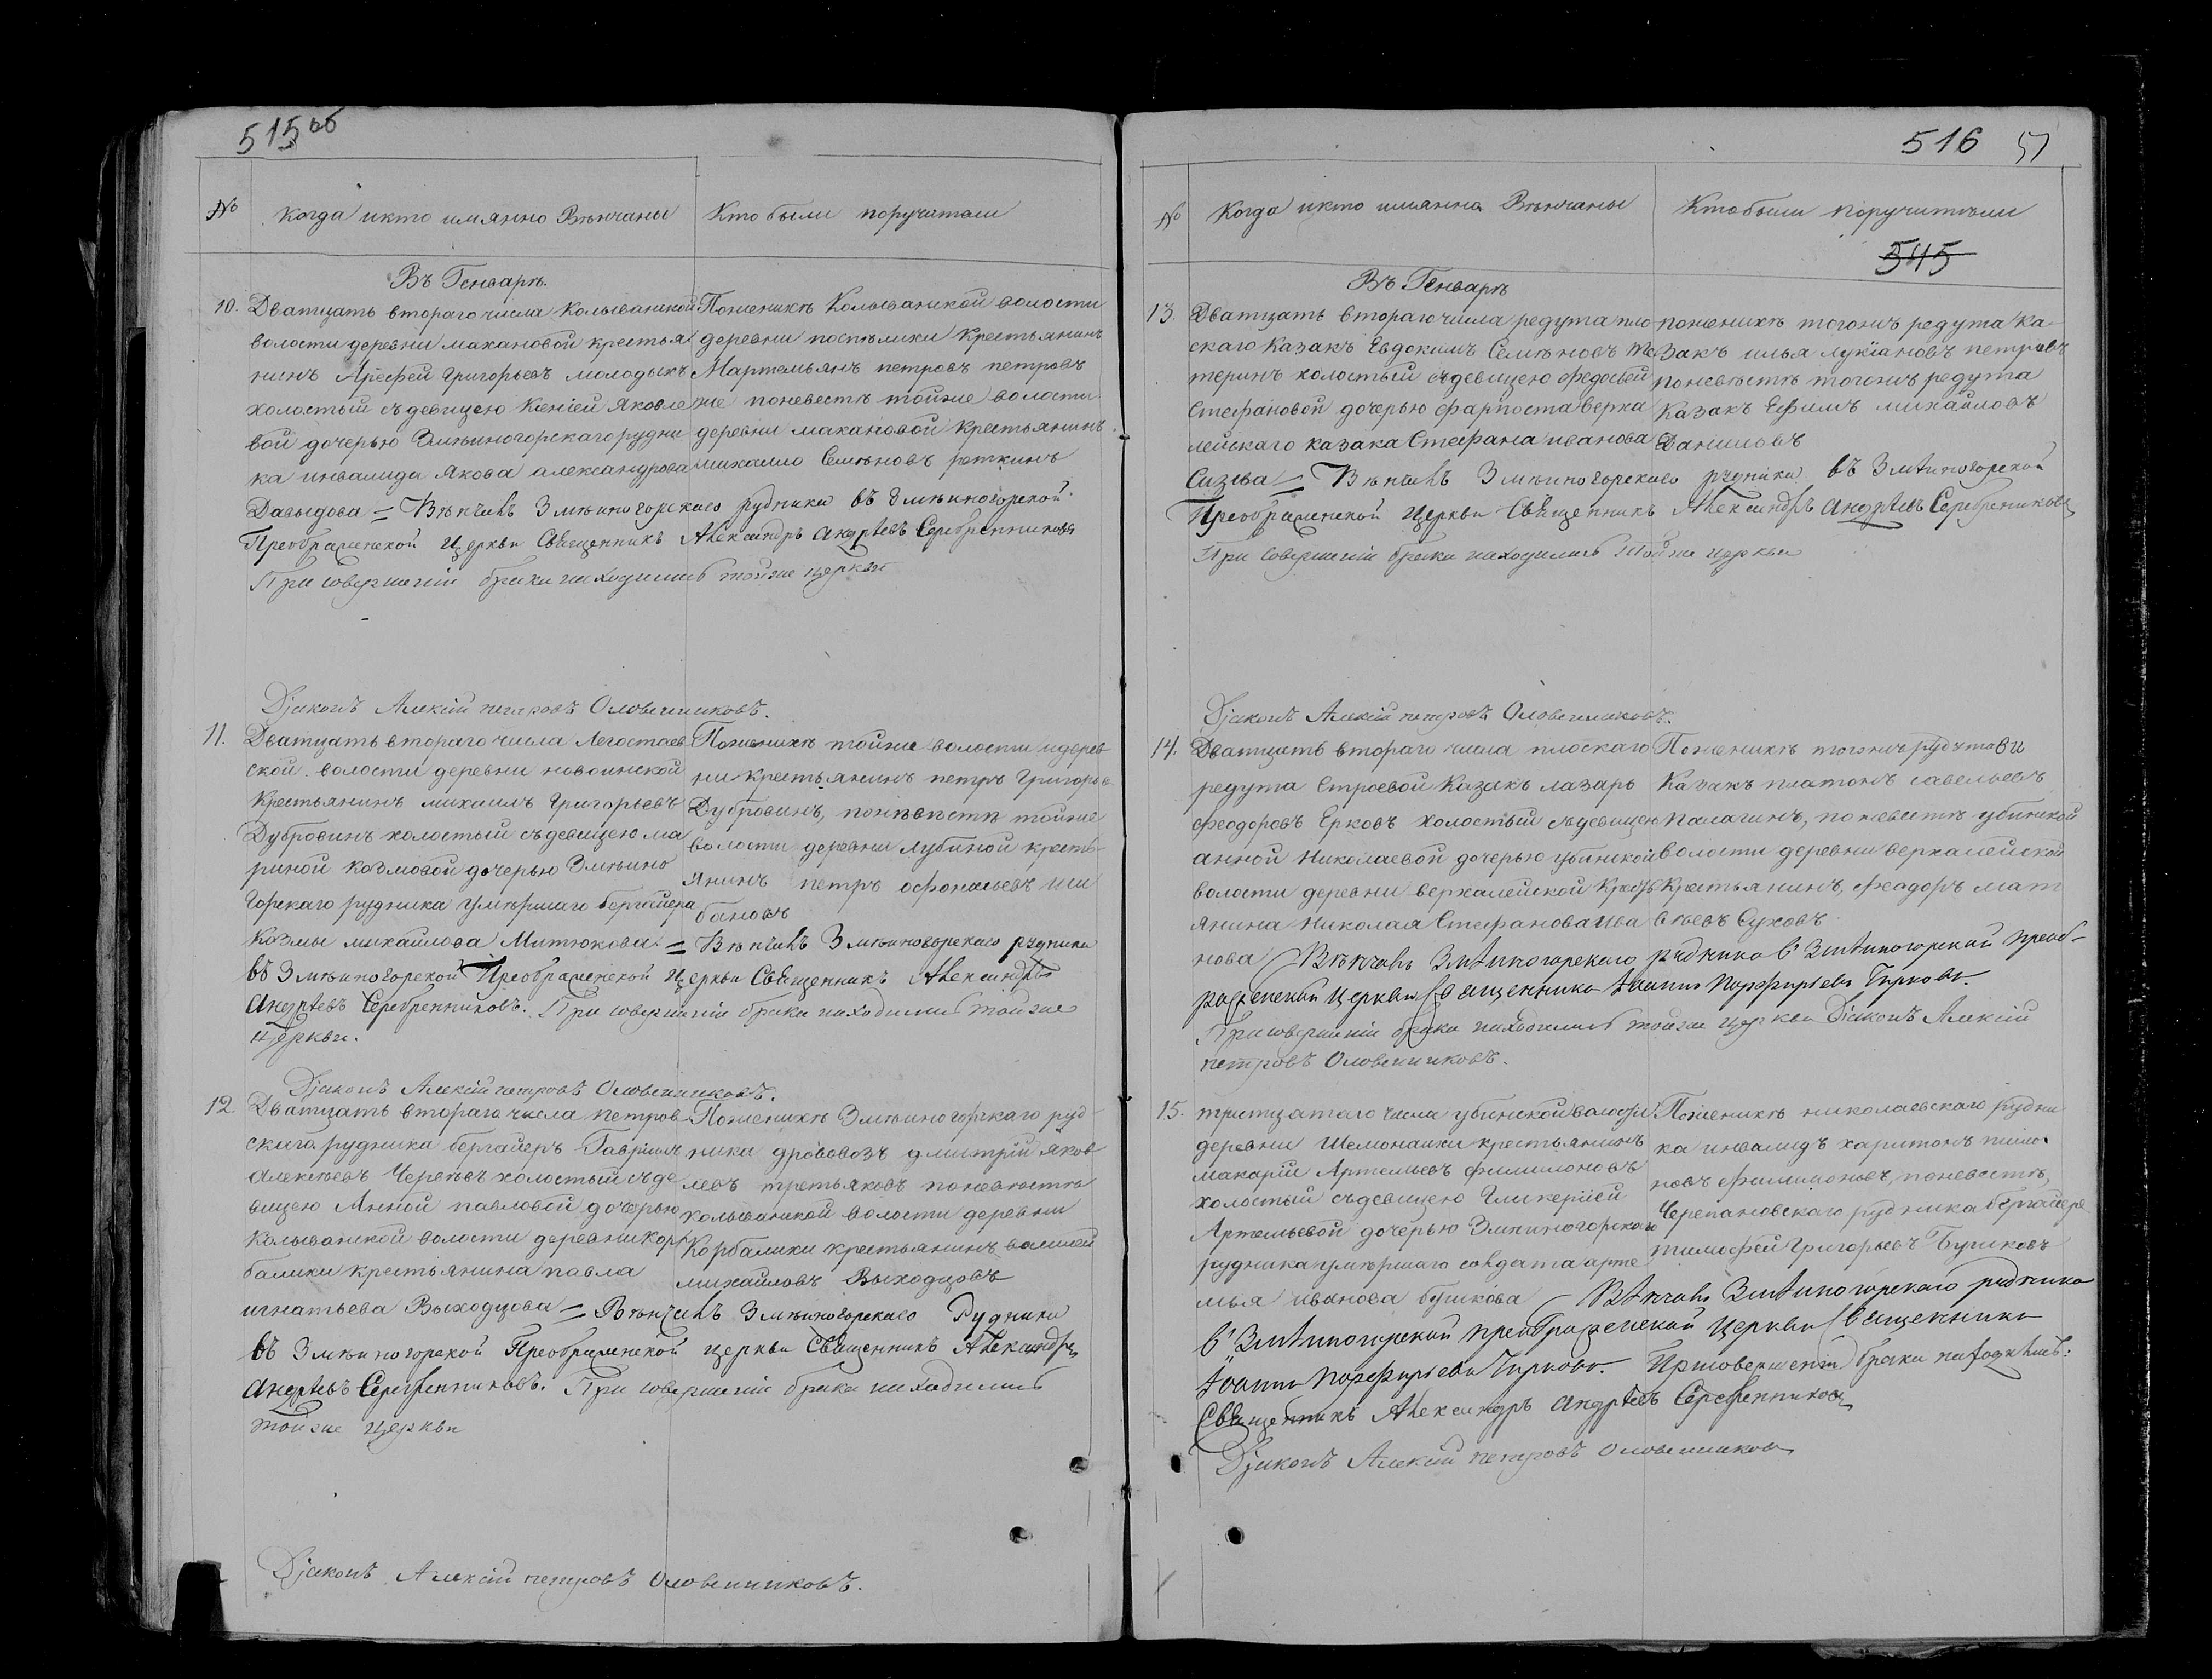 515 об
№ Когда икто имянно Венчаны Кто были поручители
Въ Генваре.
10. Дватцать втораго числа Колыванской
волости деревни макановой крестья
нинъ Арефей григорьевъ молодыхъ
холостый съ девицею Ксенiей Яковле
вой дочерью Змѣиногорскаго рудни
ка инвалида Якова александрова
Давыдова = Вѣнчалъ Змѣиногорскаго рудника въ Змѣиногорской
Преображенской церкви Священникъ Александръ Андреевъ Серебренниковъ
При совершенiи брака находились тойже церкви
Поженихѣ Колыванской волости
деревни поспѣлихи Крестьянинъ
Мартемьянъ петровъ петровъ
же поневестѣ тойже волости
деревни макановой крестьянинъ
михаило Семѣновъ
Дiяконъ Алексiй петровъ Оловенишниковъ.
11. Дватцать втораго числа Легостаев
ской волости деревни новоинской
Крестьянинъ михаилъ Григорьевъ
Дубровинъ холостый съдевицею ма
риной козмовой дочерью Змѣино
горскаго рудника умершаго бергайера
Козмы михайлова Митюкова = Вѣнчалъ Змѣиногорскаго рудника
въ Змѣиногорской Преображенской церкви Священникъ Александръ
Андреевъ Серебренниковъ. При совершенiи брака находились тойже
церкви.
Поженихѣ тойже волости идерев
ни крестьянинъ петръ Григорьев
Дубровинъ, поневѣстѣ тойже
волости деревни лубиной кресть-
янинъ петръ офонасьевъ ши
бановъ
Дiяконъ Алексiй петровъ Оловенишниковъ.
12. Дватцать втораго числа петров
скаго рудника бергайеръ Гаврiилъ
Алексѣевъ Черепевъ холостый съде
вицею Анной павловой дочерью
Колыванской волости деревни Кор
балихи крестьянина павла
игнатьева Выходцова = Вѣнчалъ Змѣиногорскаго Рудника
въ Змѣиногорской Преображенской церкви Священникъ Александръ
Андреевъ Серебренниковъ. При совершенiи брака находились
тойже церкви
Поженихѣ Змѣиногорскаго руд
ника дрововозъ дмитрiй яков
левъ третьяковъ поневѣстѣ
колыванской волости деревни
Корбалихи крестьянинъ василей
михайловъ Выходцовъ
Дiяконъ Алексiй петровъ Оловенишниковъ.
516 51
№ Когда икто имянна Вѣнчаны Ктобыли поручители
545
Въ Генварѣ
13. Дватцать втораго числа редута пло
скаго Казакъ Евдокимъ Семѣновъ Те
теринъ холостый съдевицею федосьей
Стефановой дочерью фарпоста верха
лейскаго казака Стефана иванова
Сизева = Вѣнчалъ Змѣиногорскаго рудника въ Змѣиногорской
Преображенской церкви Священникъ Александръ Андреевъ Серебренниковъ
При совершенiи брака находились тойже церкви
поженихѣ тогожъ редута Ка-
закъ илья лукiановъ петровъ
поневѣстѣ тогожъ редута
Казакъ Ефимъ михайловъ
Даниловъ
Дiяконъ Алексiй петровъ Оловенишниковъ.
14. Дватцать втораго числа плоскаго
редута Строевой Казакъ лазарь
феодоровъ Ерковъ холостый съдевицею
анной Николаевой дочерью убинской
волости деревни верхалейской Кресть
янина Николая Стефанова ива
нова Вѣнчалъ Змѣиногорскаго рудника въ Змѣиногорской преоб-
раженской церкви Священникъ Iоаннъ Порфирьевъ
При совершенiи брака находились тойже церкви Дiяконъ Алексiй
петровъ Оловенишниковъ.
Поженихѣ тогожъ
Казакъ платонъ савельевъ
палагинъ, поневестѣ убинской
волости деревни верхалейской
Крестьянинъ, феодоръ мат
вѣевъ Суховъ
15. тритцатаго числа убинской волости
деревни Шемонаихи крестьянинъ
макарiй Артемьевъ филимоновъ
холостый съдевицею Гликерiей
Артемьевой дочерью Змеиногорскаго
рудника умѣршаго солдата арте
мья иванова бушкова Вѣнчалъ Змѣиногорскаго рудника
въ Змѣиногорской преображенской церкви Священникъ
Iоаннъ Порфирьевъ При совершенiи брака находились:
Священникъ Александръ Андреевъ Серебренниковъ
Дiяконъ Алексiй петровъ Оловенишниковъ
Поженихѣ николаевскаго рудни
ка инвалидъ харитонъ
новъ филимоновъ, поневестѣ,
Черепановскаго рудника бергайеръ
тимофей Григорьевъ Бушковъ